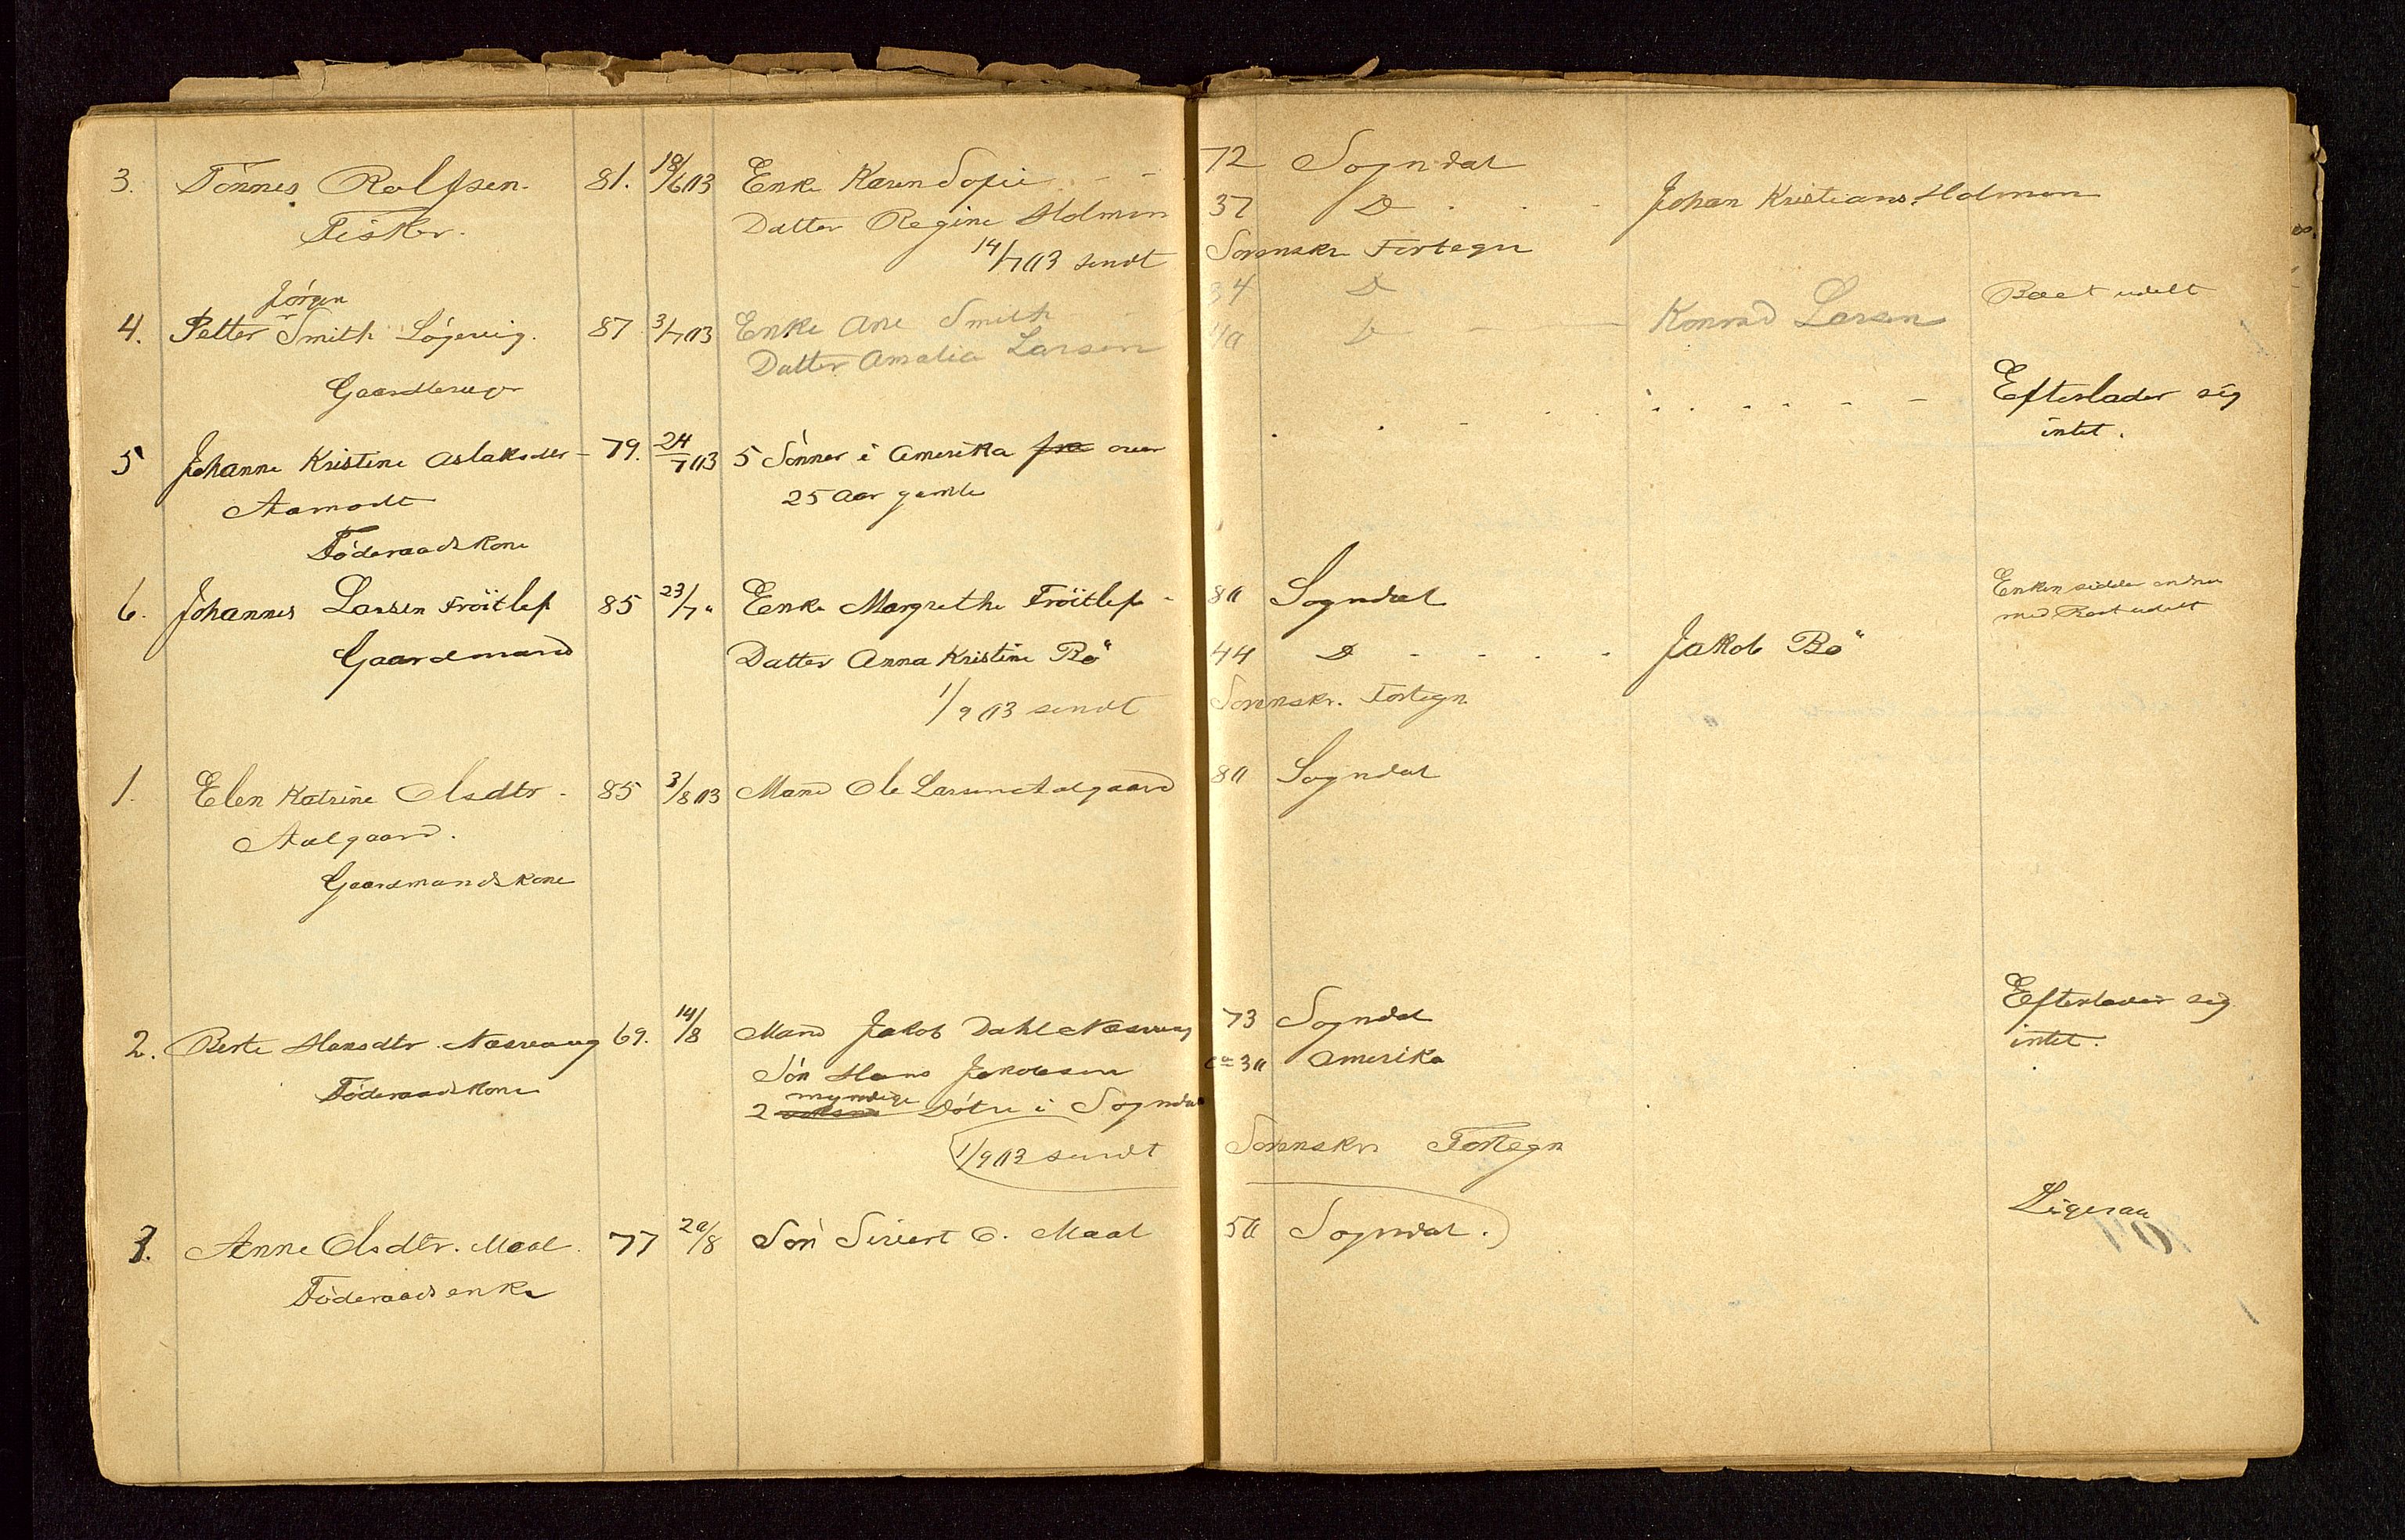 3. Tönnes Rolfsen. 81. 18/6 03 Enke Karen Sofie - - 72 Sogndal
Fisker. Datter Regine Holmen 37 D - - - Johan Kristians. Holmen
14/7 03 sendt Sorenskr Fortegn
Jörgen 34 D Boet udelt
4. Petter Smith Lögevig. 87 3/7 03 Enke Ane Smith
Datter Amalia Larsen 40 D - - Konrad Larsen
Gaardbruger
Efterlader sig
intet.
5 Johanne Kristine Aslaksdtr - 79. 24/7 03 5 Sönner i Amerika fra over
Aamodt 25 Aar gamle
Föderaadskone
6. Johannes Larsen Fröitlef 85 23/7 " Enke Margrethe Fröitlef - 80 Sogndal Enken sidder
med Boet udelt
Gaardmand Datter Anna Kristine Bö 44 D - - - - Jakob Bö
1/9 03 sendt Sorenskr. Fortegn
1. Elen Katrine Olsdtr - 85 3/8 03 Mand Ole Larsen Aalgaard 80 Sogndal
Aalgaard.
Gaardmandskone
Efterlader sig
intet.
2. Berte Hansdtr. Næsvaag 69. 14/8 Mand Jakob Dahl Næsvaag 73 Sogndal
Föderaadskone Sön Hans Jakobsen ca 30 Amerika
myndige
2 voksne Dötre i Sogndal
1/9 03 sendt Sorenskr Fortegn
Ligesaa
3. Anne Olsdtr. Maal. 77 20/8 Sön Sivert O. Maal 50 Sogndal.
Föderaadsenke